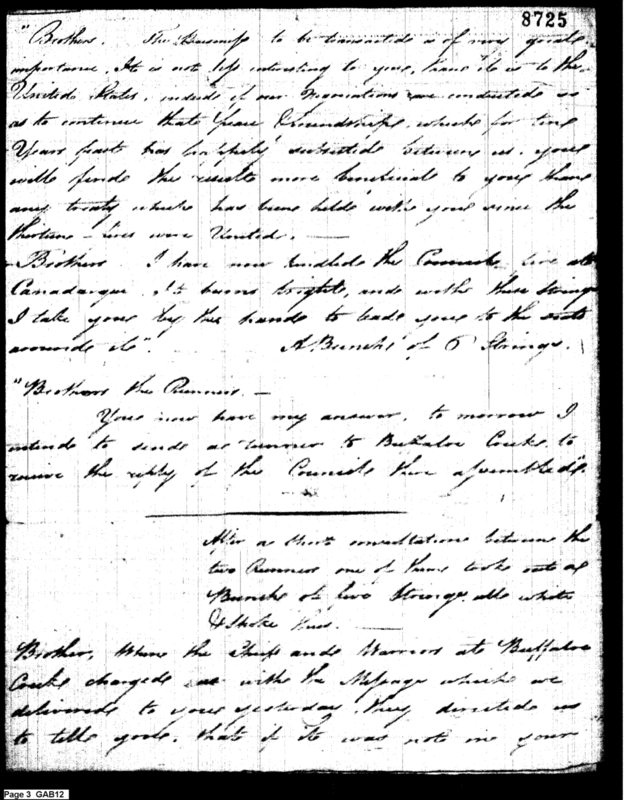 8725
"Brothers. The Business to be transacted is of very great
importance. It is not less interesting to you, than it is to the
United States, indeed if our Transactions are conducted so
as to continue that Peace & Friendship, which for
Years past has happily subsisted between us, you
will find the result more beneficial to you than
any treaty which has been held with you since the
thirteen Fires were United. —
"Brothers. I have now kindled the Council fire at
Canadaigua. It burns bright, and with these strings
I take you by the hand to lead you to the seats
around it". A Bunch of 6 Strings.
"Brothers the Runners. —
You now have my answer, to morrow I
intend to send a runner to Buffaloe Creek to
receive the reply of the Council there assembled".
After a short consultation between the
two Runners one of them took out a
Bunch of five Strings all white
& spoke thus. —
Brother, When the Chiefs and Warriors at Buffaloe
Creek charged us with the Message which we
delivered to you yesterday, they directed us
to tell you, that if it was not in your
Page 3 GAB12